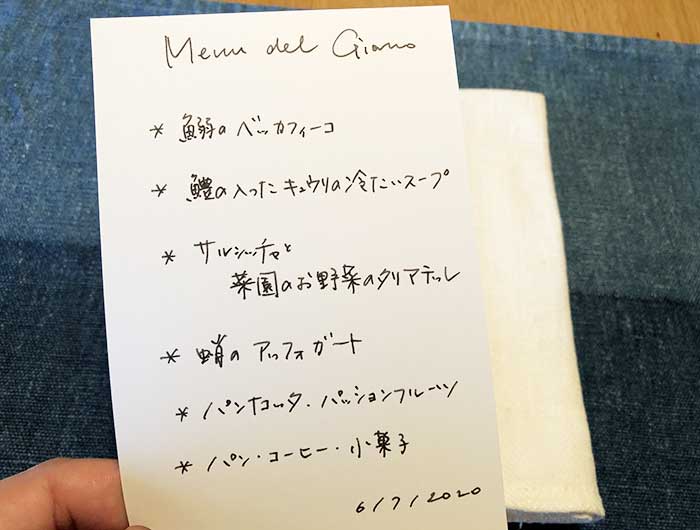 Menu del Giorno
* 鰯のベッカフィーコ
* 鱧の入ったキュウリの冷たいスープ
* サルシッチャと
菜園のお野菜のタリアテッレ
* 蛸のアッフォガート
* パンナコッタ・パッションフルーツ
* パン・コーヒー・小菓子
6/7/2020